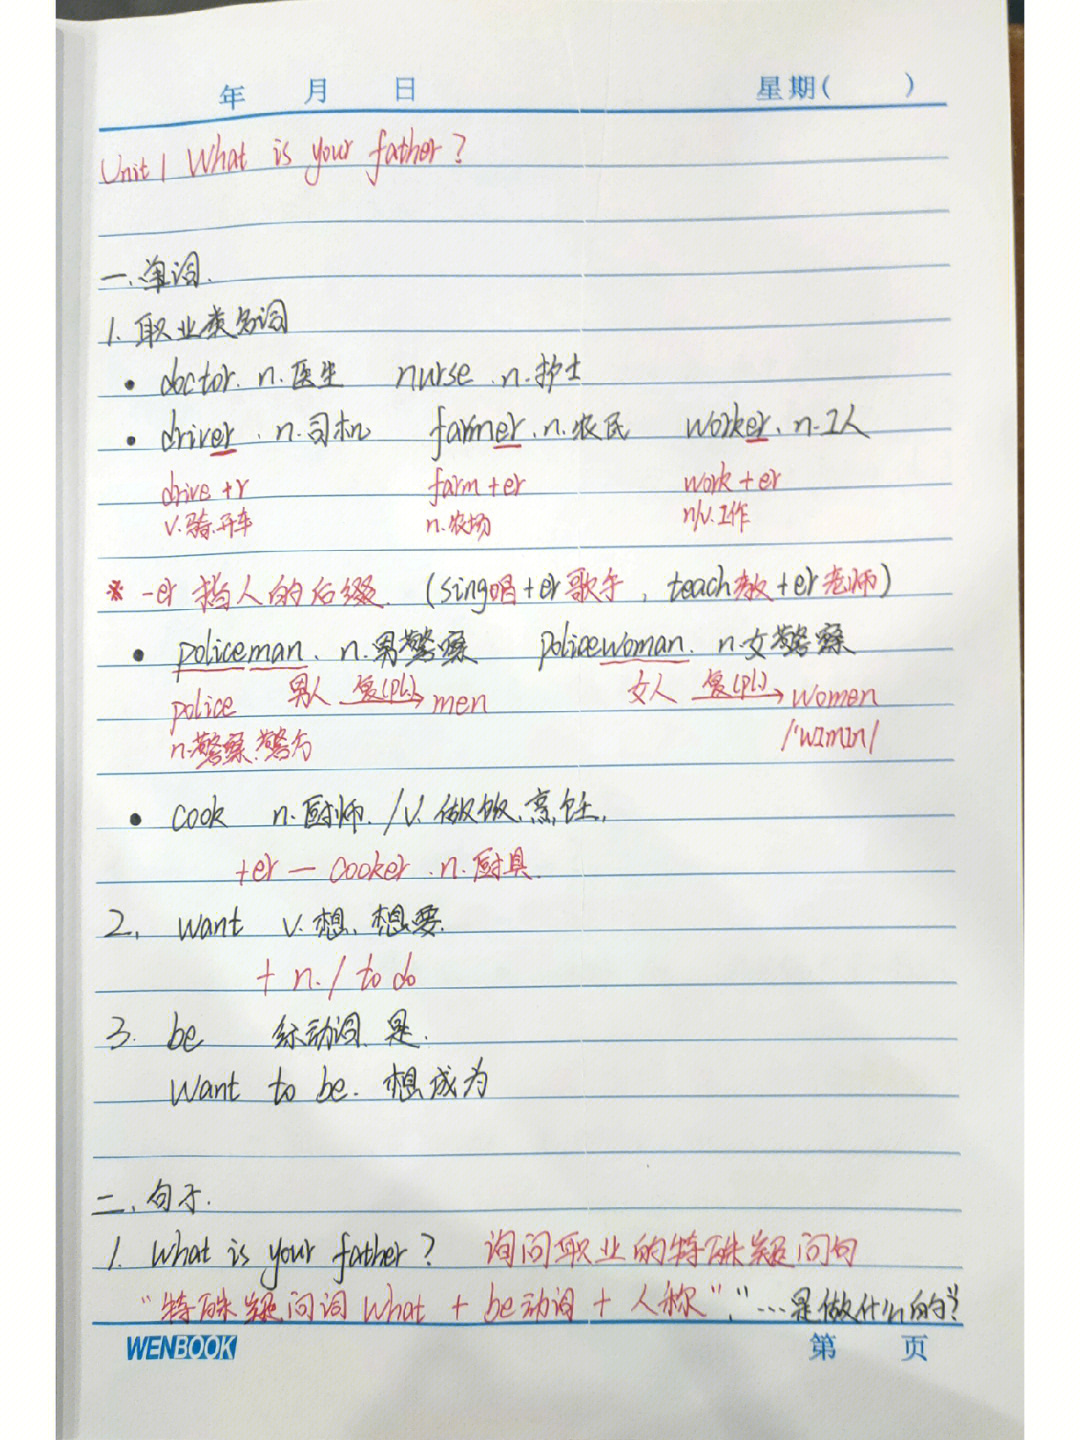 年 月 日 星期( )
Unit 1 What is your father?
一、单词.
1. 职业类名词
• doctor. n. 医生 nurse. n. 护士
• driver. n. 司机 farmer. n. 农民 worker. n. 工人
drive + r farm + er work + er
v. 骑、开车 n. 农场 n/v. 工作
※ -er 指人的后缀. (sing唱+er歌手, teach教+er老师)
• policeman. n. 男警察 policewoman. n. 女警察
police 男人 复(pl.)→ men 女人 复(pl.)→ women
n. 警察、警方 /'wImIn/
• cook n. 厨师. / v. 做饭、烹饪.
+er — cooker. n. 厨具.
2. want v. 想、想要.
+ n. / to do
3. be 系动词 是.
want to be. 想成为
二、句子.
1. What is your father? 询问职业的特殊疑问句
"特殊疑问词 what + be动词 + 人称". "...是做什么的?"
WENBOOK 第 页